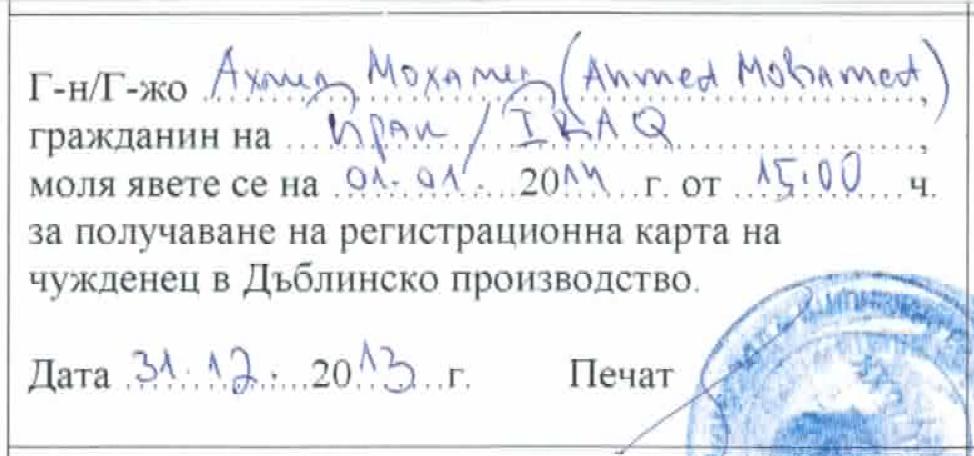 Г-н/Г-жо Ахмед Мохамед (Ahmed Mohamed),
гражданин на Ирак / IRAQ,
моля явете се на 01.01. 2014 г. от 15:00 ч.
за получаване на регистрационна карта на
чужденец в Дъблинско производство.
Дата 31.12. 2013 г. Печат